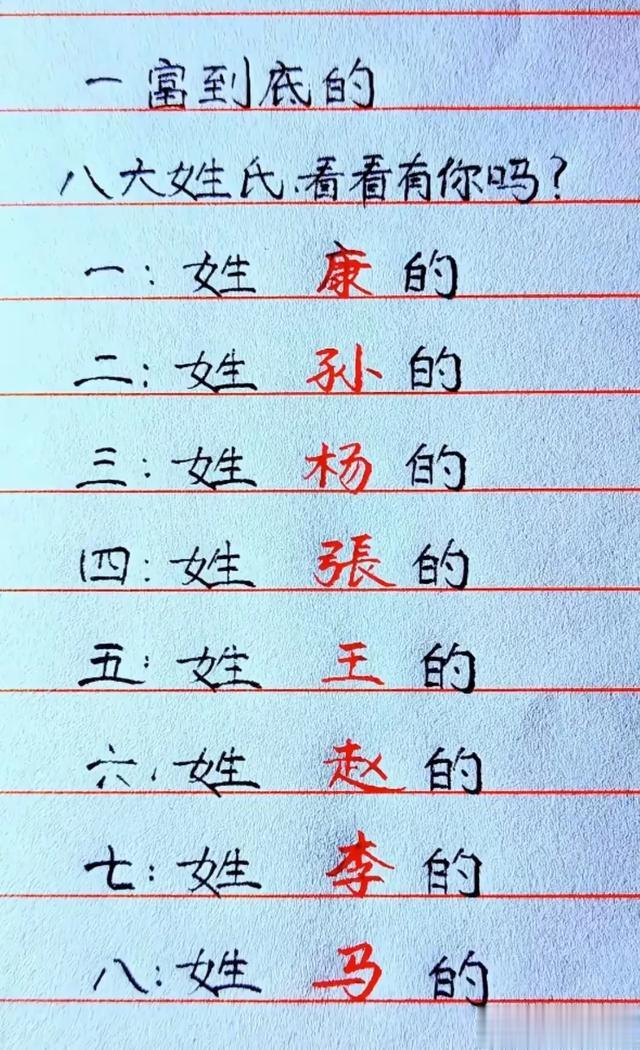 一富到底的
八大姓氏、看看有你吗?
一: 姓 康 的
二: 姓 孙 的
三: 姓 杨 的
四: 姓 張 的
五: 姓 王 的
六, 姓 赵 的
七: 姓 李 的
八: 姓 马 的